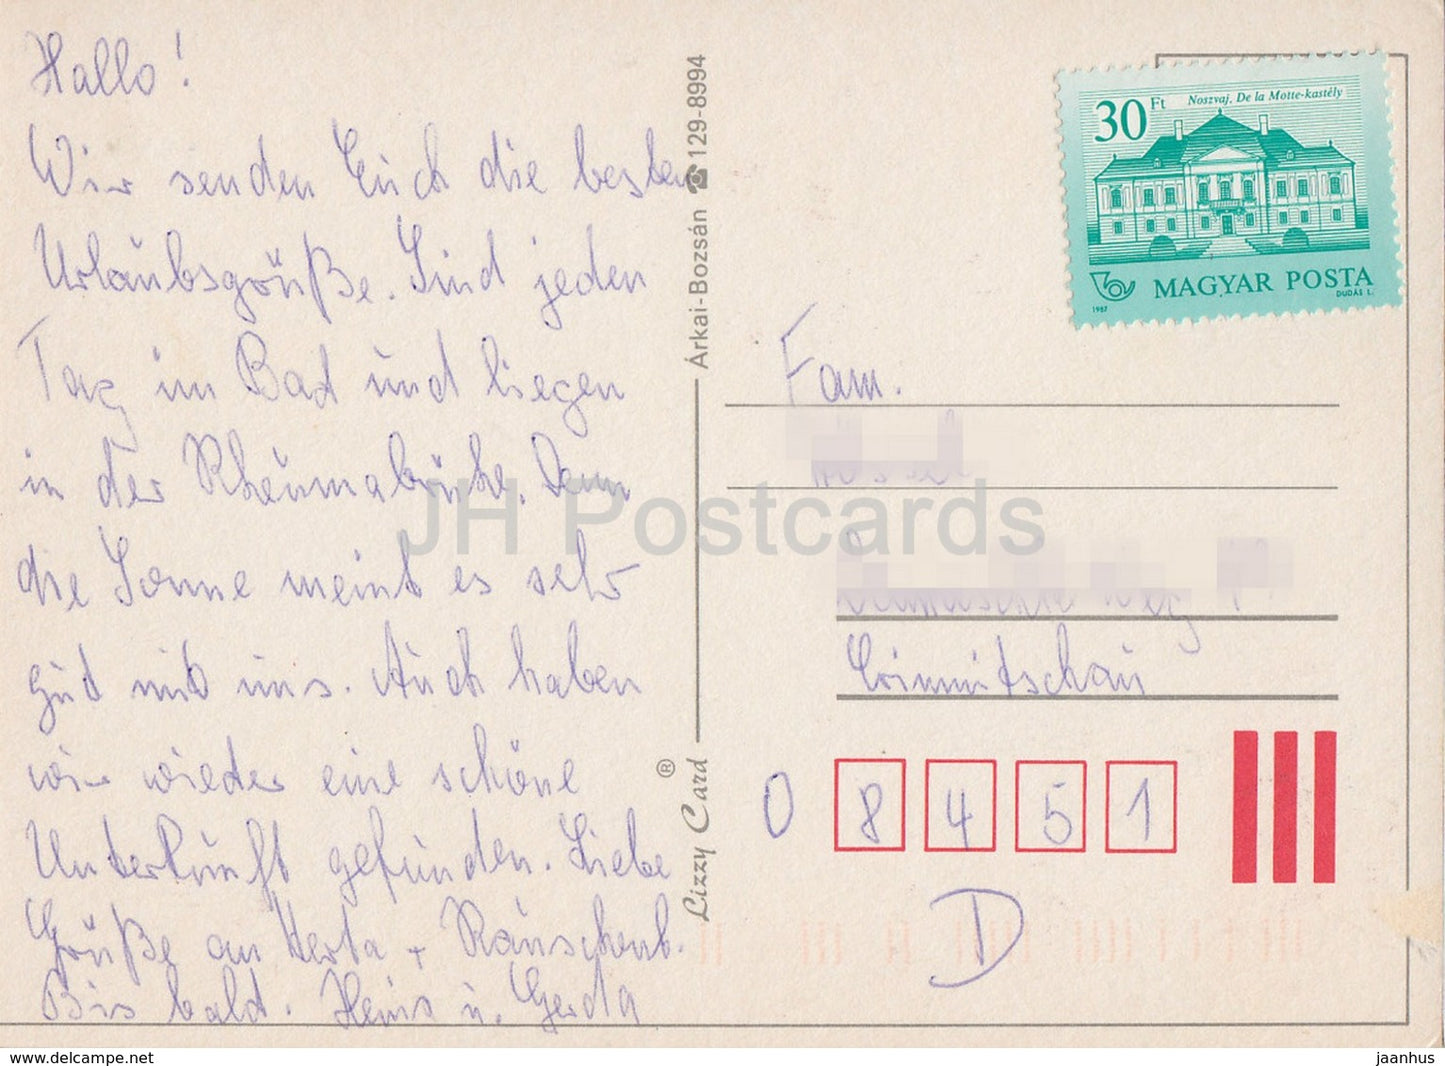 Hallo!
Wir senden Euch die besten
Urlaubsgrüße. Sind jeden
Tag im Bad und liegen
in der Rheumabrühe. Denn
die Sonne meint es sehr
gut mit uns. Auch haben
wir wieder eine schöne
Unterkunft gefunden. Liebe
Grüße an Herta + Rauschenb.
Bis bald. Heins u. Gerda
Lizzy Card ®
Árkai-Bozsán ☎ 129-8994
30 Ft
Noszvaj. De la Motte-kastély
MAGYAR POSTA
DUDÁS L.
1987
Fam.
Crimmitschau
0 8 4 5 1
D
JH Postcards
www.delcampe.net
jaanhus